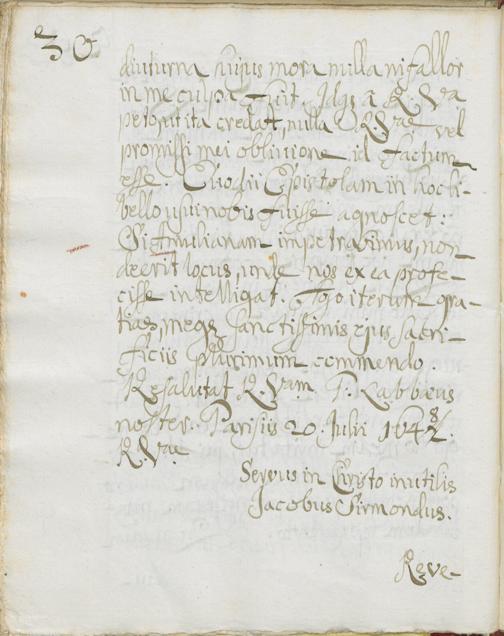 30
diuturna hujus mora nulla ni fallor
in me culpa fuit. Idq; a R. Va
peto, ut ita credat, nulla R. Vae vel
promissi mei oblivione id factum
esse. Evodii Epistolam in hoc li-
bello usui nobis fuisse agnoscet:
Si impetravimus, non
deerit locus, unde nos ex ea profe-
cisse intelligat. Ago iterum gra-
tias, meq; sanctissimis ejus sacri-
ficiis plurimum commendo.
Resalutat R. Vam P. Labbæus
noster. Parisiis 20. Julii 1648.
R. Vae
Servus in Christo inutilis
Jacobus Sirmondus.
Reve-